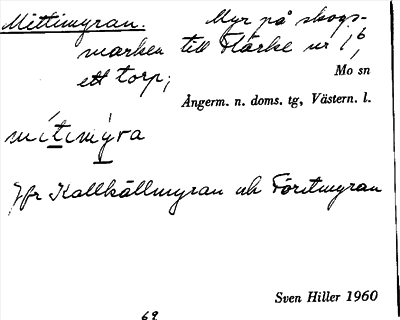 Mittimyran. Myr på skogs-
marken till Flärke nr 1,6,
ett torp;
Mo sn
Ångerm. n. doms. tg, Västern. l.
mítimýra
Jfr Kallkällmyran och Företmyran
Sven Hiller 1960
69